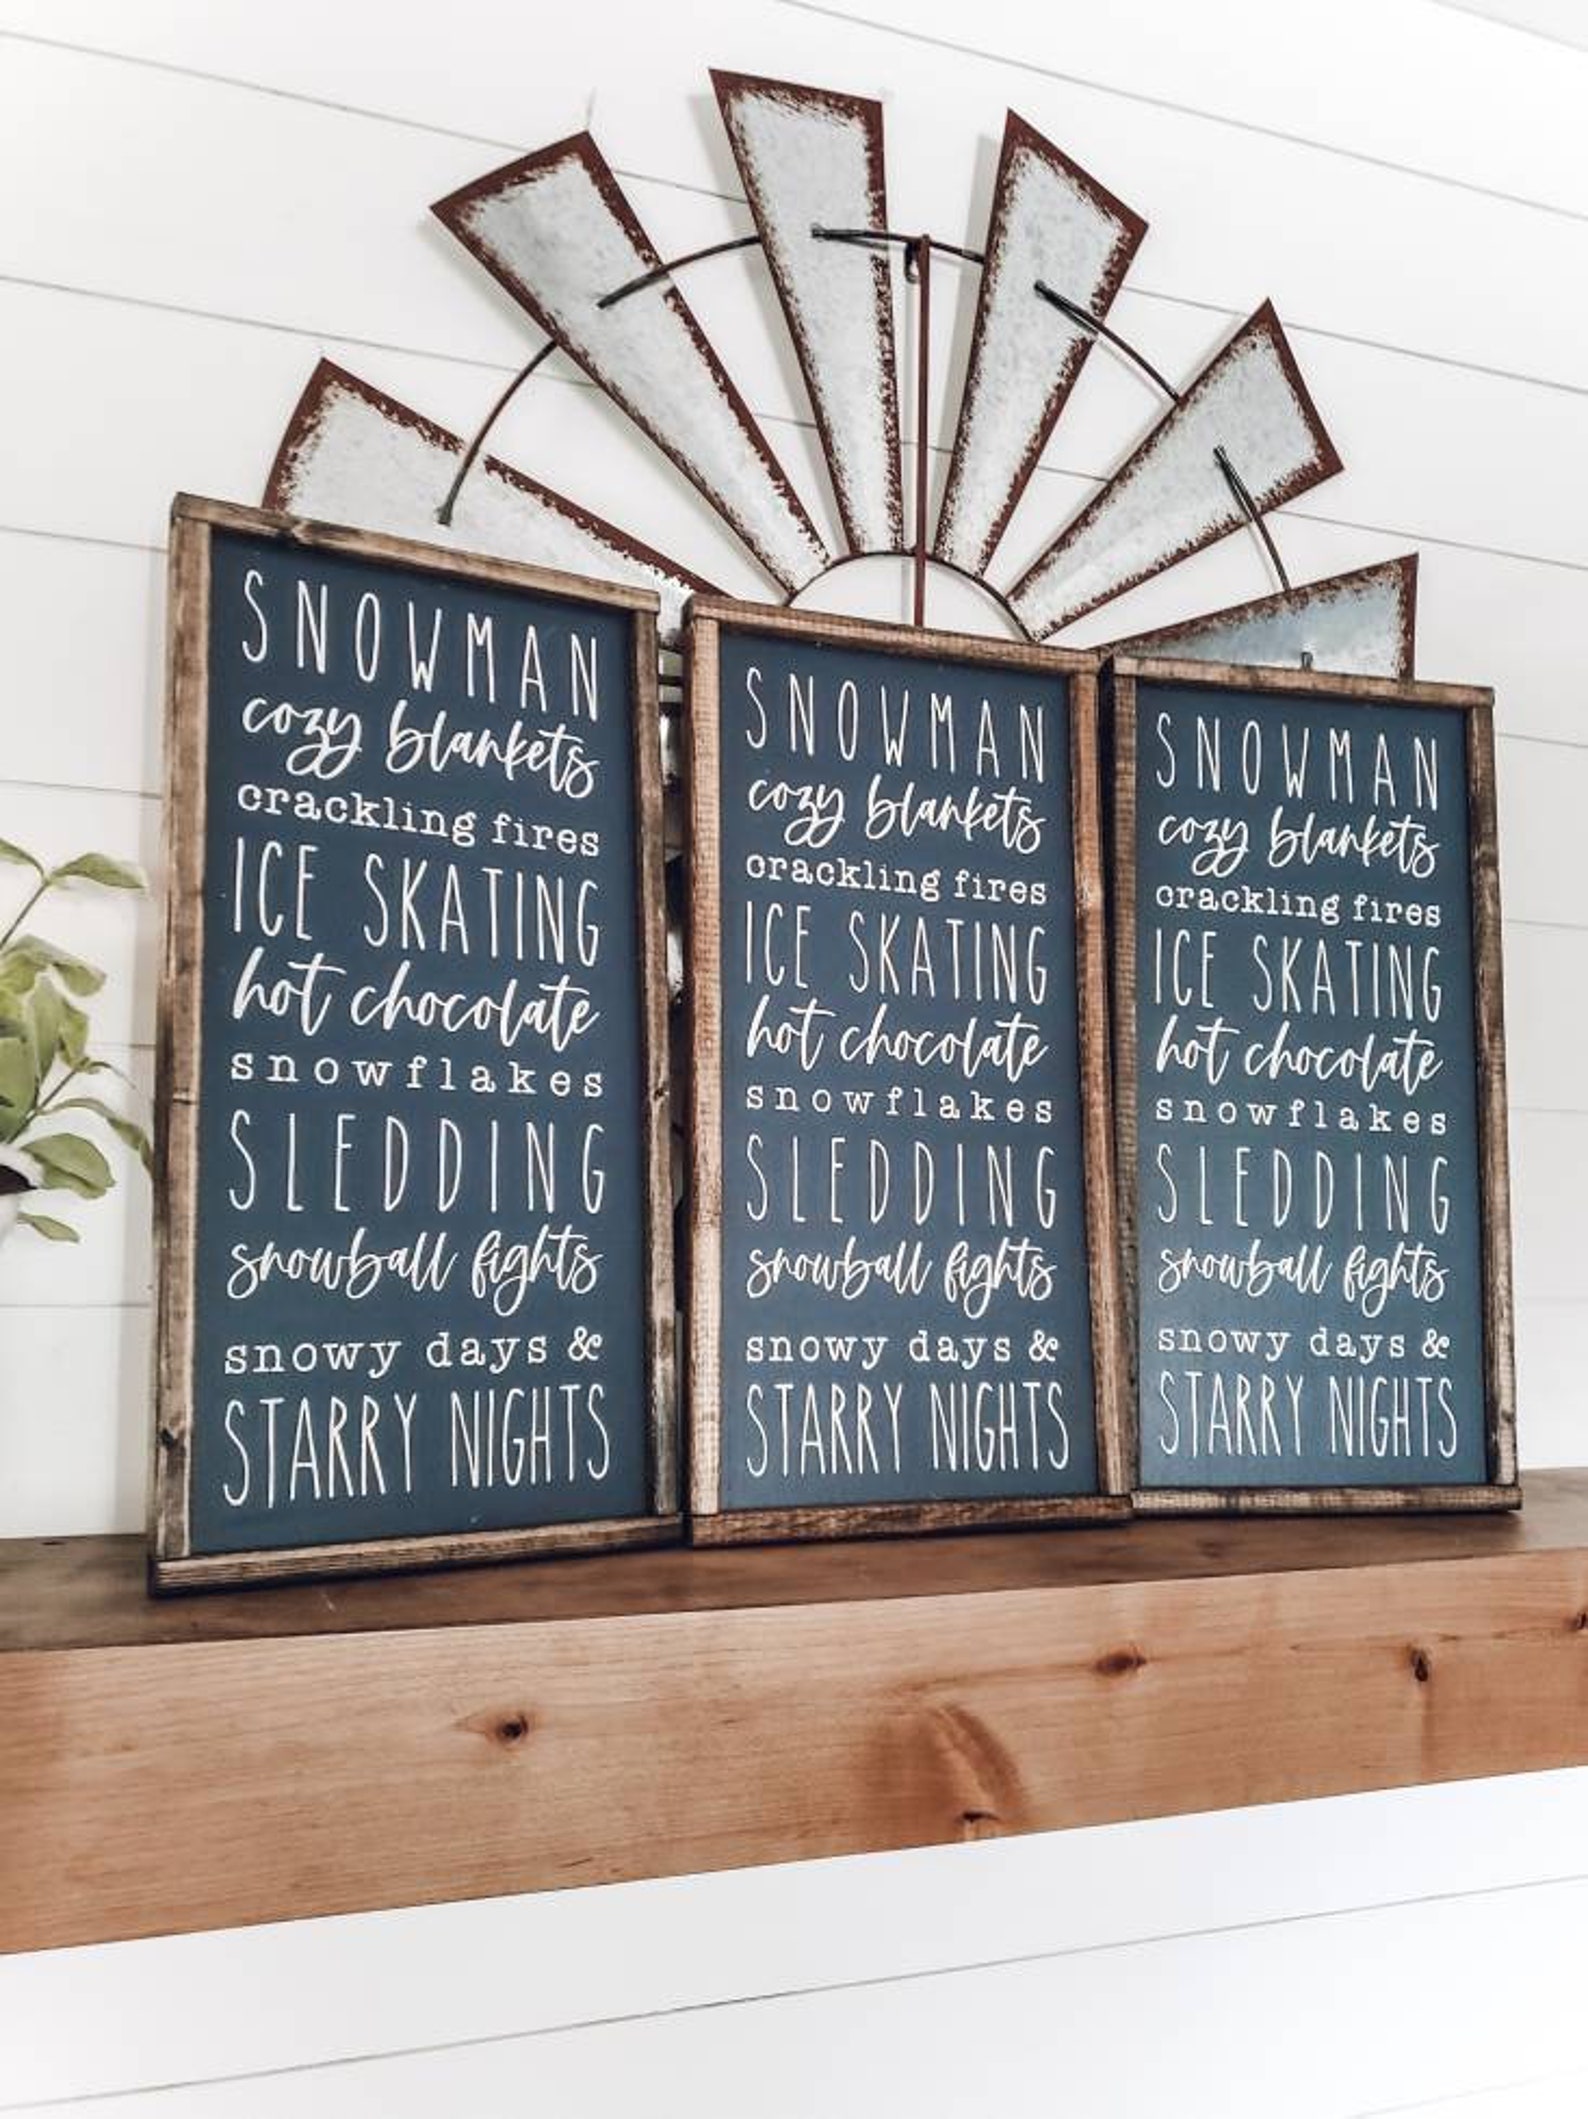 SNOWMAN
cozy blankets
crackling fires
ICE SKATING
hot chocolate
snowflakes
SLEDDING
snowball fights
snowy days &
STARRY NIGHTS
SNOWMAN
cozy blankets
crackling fires
ICE SKATING
hot chocolate
snowflakes
SLEDDING
snowball fights
snowy days &
STARRY NIGHTS
SNOWMAN
cozy blankets
crackling fires
ICE SKATING
hot chocolate
snowflakes
SLEDDING
snowball fights
snowy days &
STARRY NIGHTS